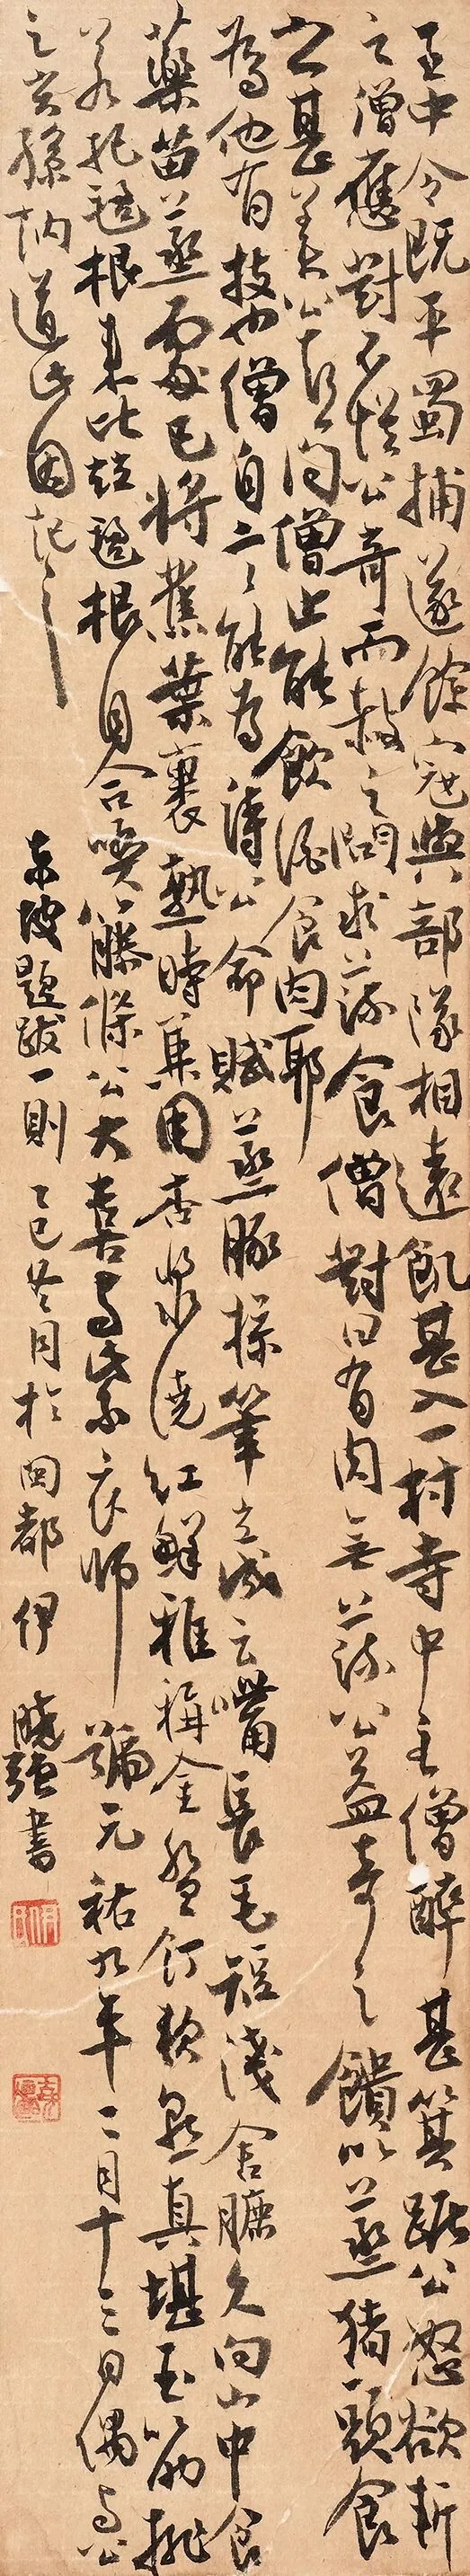 王中令既平蜀捕逐餘寇與部隊相遠飢甚入一村寺中主僧醉甚箕踞公怒欲斬
之僧應對不懼公奇而赦之問求蔬食僧對曰有肉無蔬公益奇之饋以蒸猪頭食
之甚美公喜問僧止能飲酒食肉耶
為他有技也僧自言能為詩公命賦蒸豚操筆立成云嘴長毛短淺含膘久向山中食
藥苗蒸處已將蕉葉裹熟時兼用杏漿澆紅鮮雅稱金盤飣軟熟真堪玉筯挑
若把氊根來比並氊根自合喫藤條公大喜與紫衣師號元祐九年二月十三日偶與公
之玄孫訥道此因記之
東坡題跋一則 乙巳冬月於回都伊 曉強書